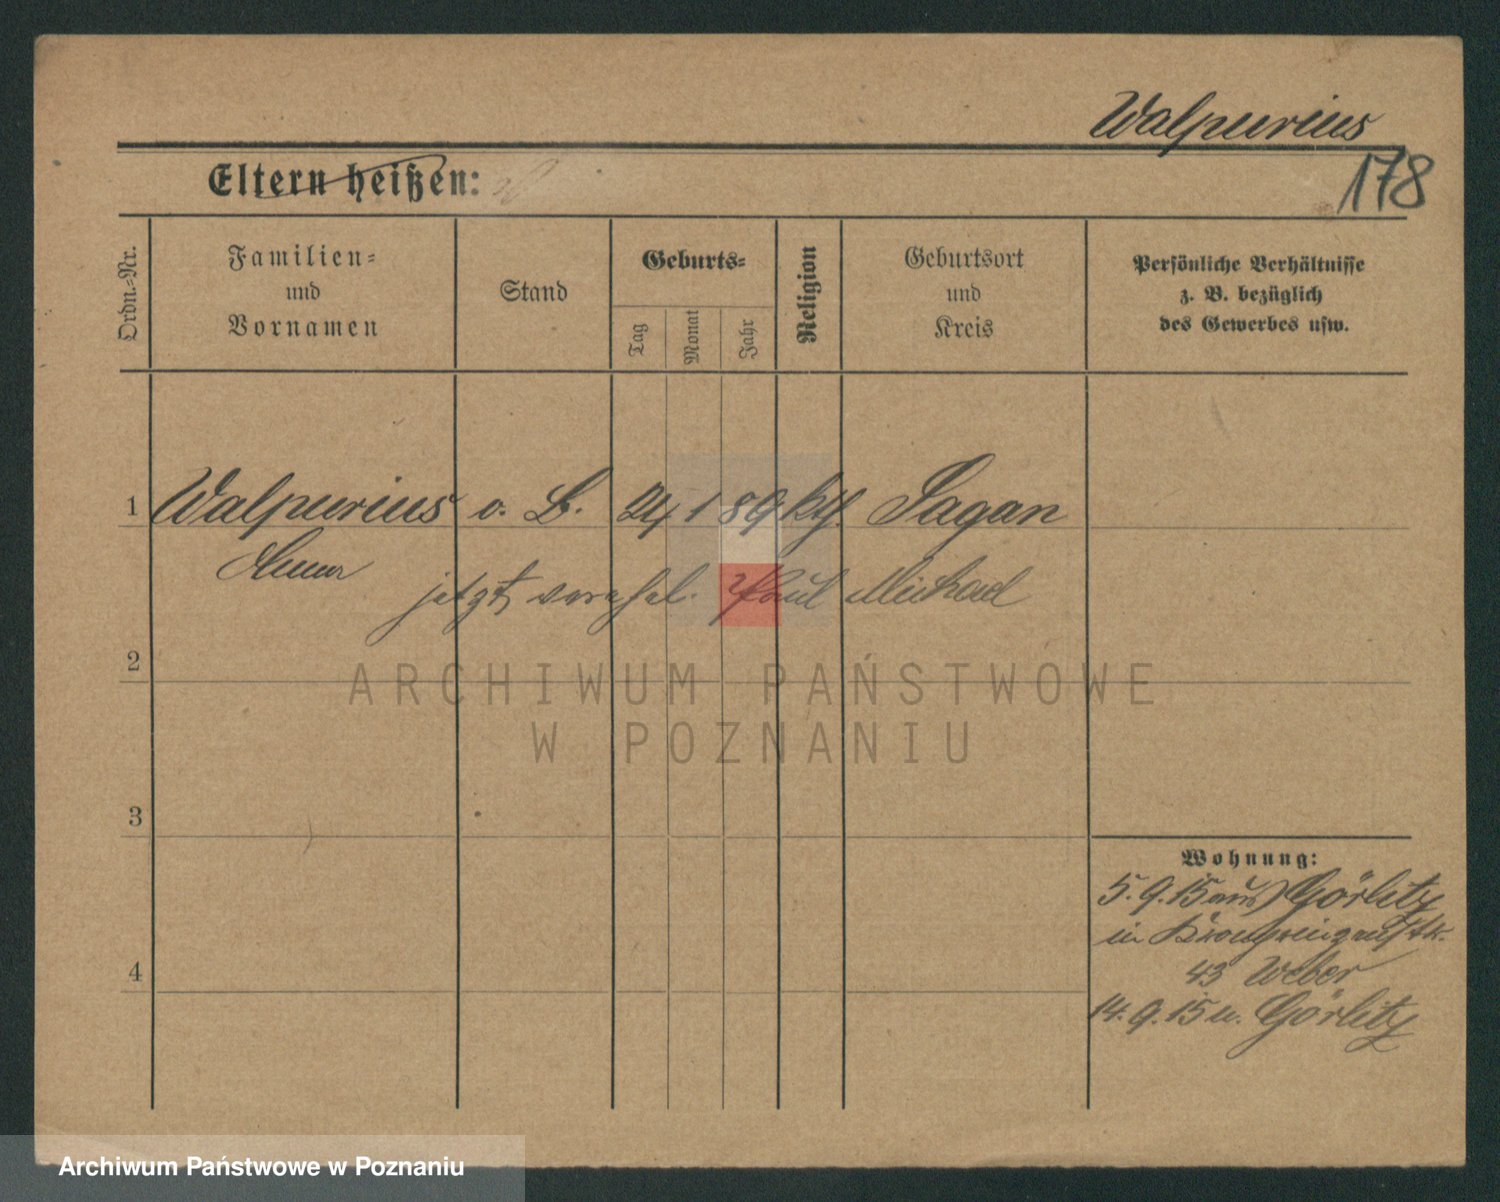 Walpurius
178
Eltern heißen:
Ordn.-Nr.
Familien-
und
Vornamen
Stand
Geburts-
Tag
Monat
Jahr
Religion
Geburtsort
und
Kreis
Persönliche Verhältnisse
z. B. bezüglich
des Gewerbes usw.
1 Walpurius o. B. 24 1 89 kth. Sagan
jetzt verehel. Paul Michael
2
ARCHIWUM PAŃSTWOWE
W POZNANIU
3
Wohnung:
5.9.15 aus Görlitz
in Kronprinzenstr.
43 Weber
4
14.9.15 n. Görlitz
Archiwum Państwowe w Poznaniu